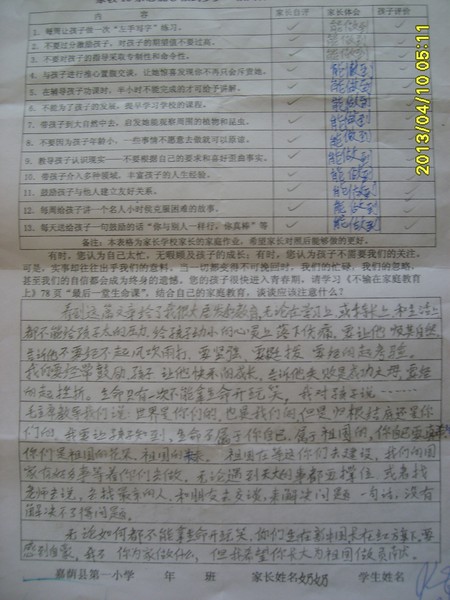 内 容 家长自评 家长体会 孩子评价
1. 每周让孩子做一次“左手写字”练习。 能做到
2. 不要过分激励孩子，对孩子的期望值不要过高。 能做到
3. 不要对孩子的指导采取专制性和命令性。
4. 与孩子进行推心置腹交谈，让她惊喜发现你不再只会斥责她。 能做到
5. 在辅导孩子功课时，半小时不能完成的才可给予讲解。 能做到
6. 不能为了孩子的发展，提早学习学校的课程。 能做到
7. 带孩子到大自然中去，启发她能观察周围的植物和昆虫。 能做到
8. 不要因为孩子年龄小，一些事情不愿意去做就可以原谅。 能做到
9. 教导孩子认识现实——不要根据自己的要求和喜好歪曲事实。 能做到
10. 带孩子介入多种领域，丰富孩子的人生经验。 能做到
11. 鼓励孩子与他人建立友好关系。 能做到
12. 每周给孩子讲一个名人小时侯克服困难的故事。 能做到
13. 每天送给孩子一句激励的话“你与别人一样行，你真棒”等 能做到
备注：本表格为家长学校家长的家庭作业，希望家长对照后能够做的更好。
有时，您认为自己太忙，无暇顾及孩子的成长；有时，您认为孩子不需要我们的关注。
可是，实事却往往出乎我们的意料。当一切都变得不可挽回时，我们的忙碌，我们的忽略，
甚至我们的自信都会成为终身的遗憾。您的孩子很快进入青春期，请学习《不输在家庭教育
上》78页“最后一堂生命课”，结合自己的家庭教育，谈谈应该注意什么？
看到这篇文章给了我很大启发教育，无论在学习上 或 上和生活上
都不能给孩子太大的压力，给孩子幼小的心灵上落下伤痕，要让他
告诉他不要经不起风吹雨打，要坚强，要 要经的起考验。
我们要经常鼓励孩子，让他快乐的成长，告诉他失败是成功之母，要经
的起挫折。生命只有一次不能拿生命开玩笑，我对孩子说……
毛主席教导我们说：世界是你们的，也是我们的但是归根结底还是你
们的，我要让孩子知到，生命不属于你自己，属于祖国的，你自己要
你们是祖国的花朵，祖国的未来，祖国在等这你们去建设，我们的国
家有好多事等着你们去做，无论遇到天大的事都要撑住，或者找
老师去说，去找最亲的人，和朋友去交谈，来解决问题，一句话，没有
解决不了得问题。
无论如何都不能拿生命开玩笑，你们生在新中国长在红旗下，要
感到自豪，我不 你为家做什么，但我希望你长大为祖国做贡献。
嘉荫县第一小学 年 班 家长姓名奶奶 学生姓名
2013/04/10 05:11